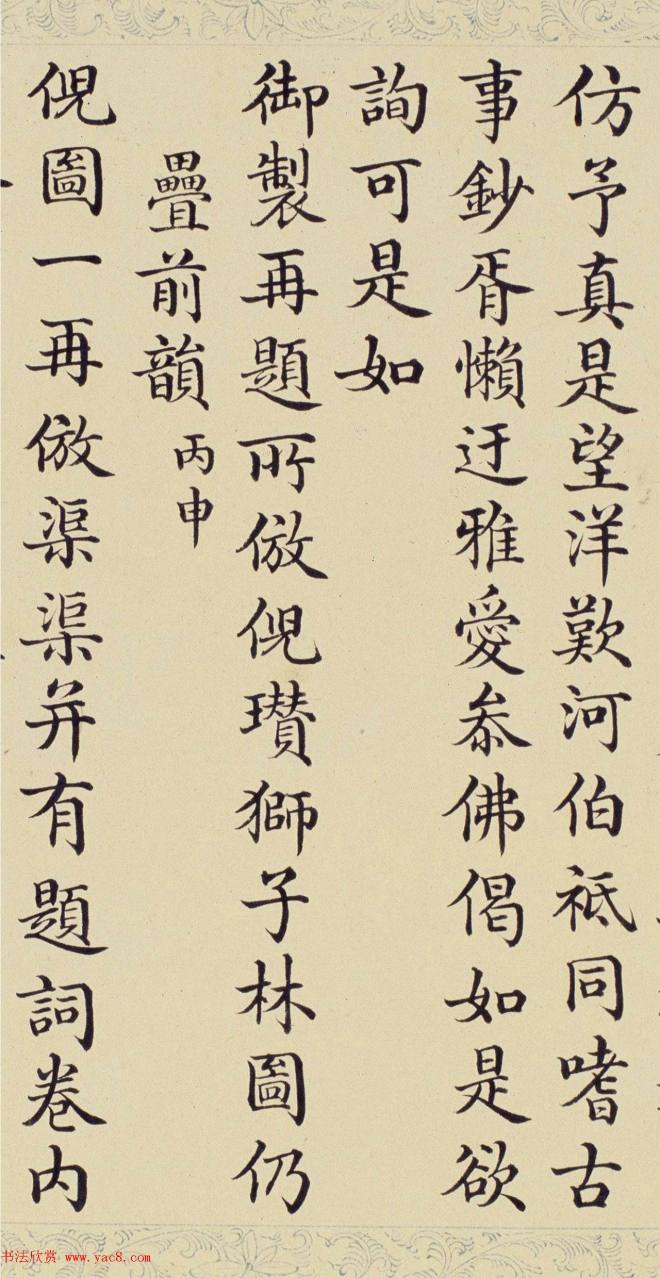 仿予真是望洋歎河伯祗同嗜古
事鈔胥懶迂雅愛叅佛偈如是欲
詢可是如
御製再題所倣倪瓚獅子林圖仍
疊前韻 丙申
倪圖一再倣渠渠并有題詞卷内
书法欣赏 www.yac8.com